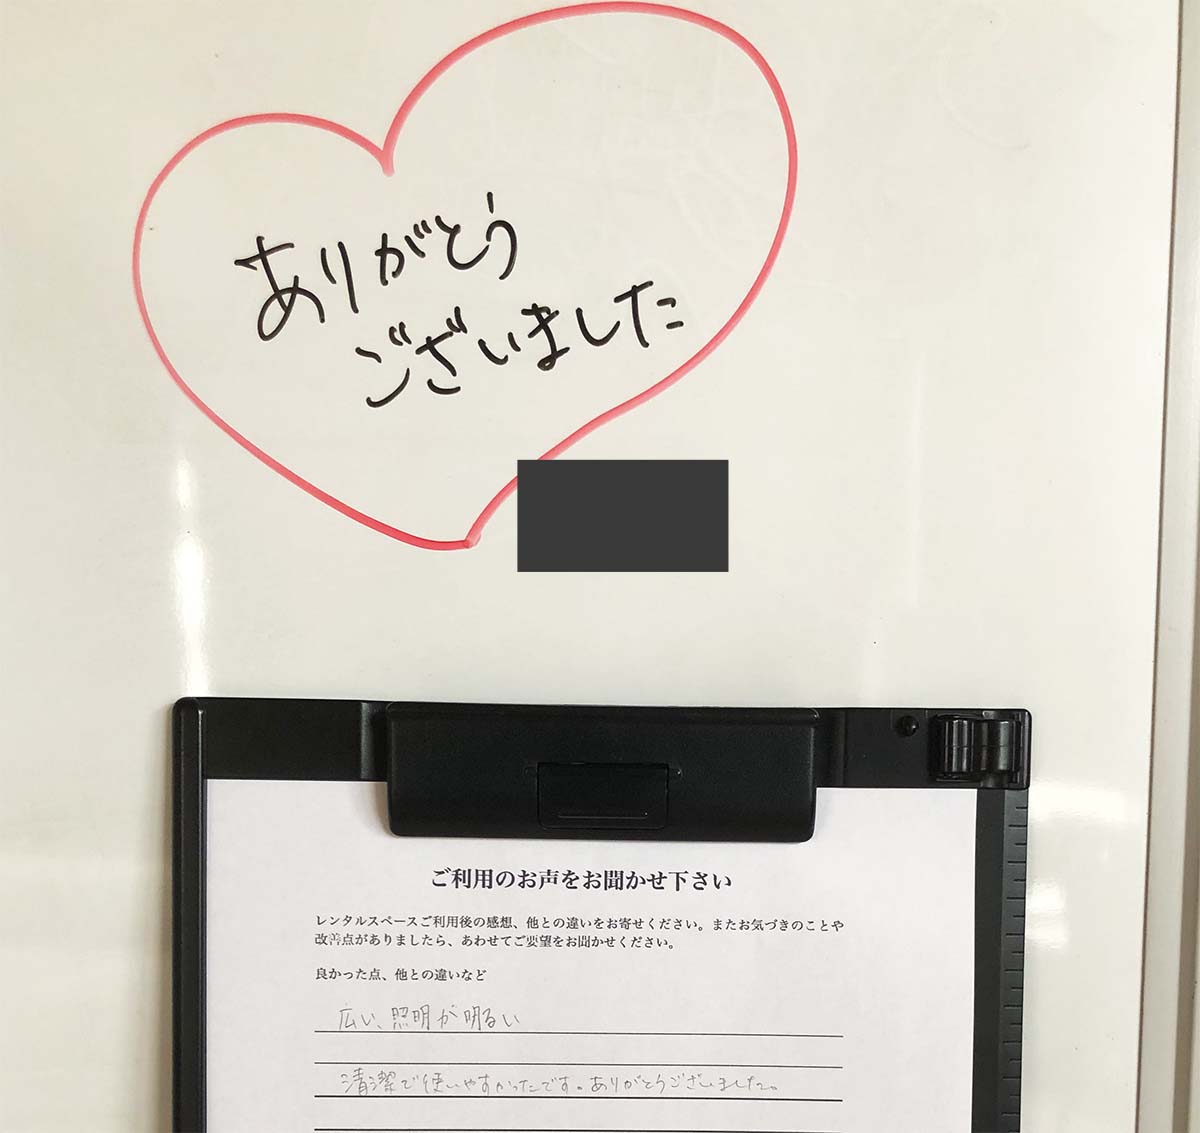 ありがとう
ございました
ご利用のお声をお聞かせ下さい
レンタルスペースご利用後の感想、他との違いをお寄せください。またお気づきのことや
改善点がありましたら、あわせてご要望をお聞かせください。
良かった点、他との違いなど
広い、照明が明るい
清潔で使いやすかったです。ありがとうございました。